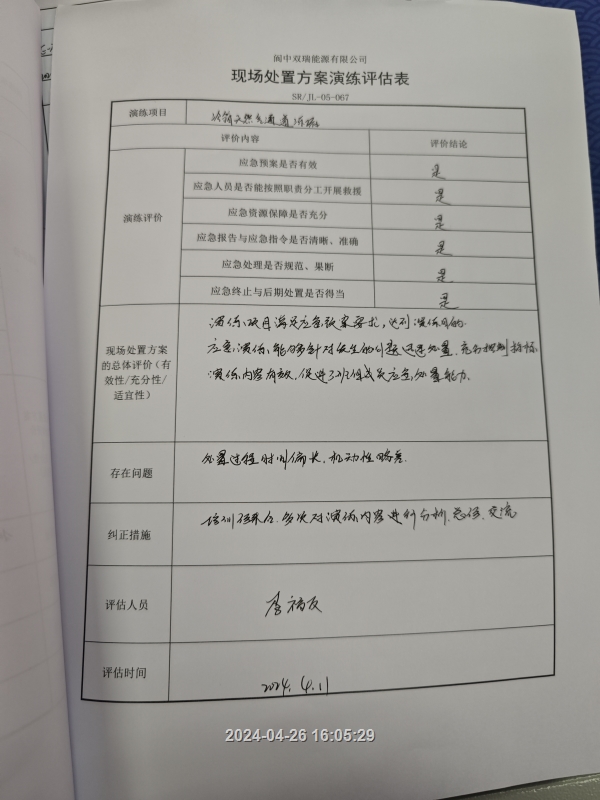 阆中双瑞能源有限公司
现场处置方案演练评估表
SR/JL-05-067
演练项目
冷箱天然气通道泄漏
评价内容 评价结论
演练评价
应急预案是否有效 是
应急人员是否能按照职责分工开展救援 是
应急资源保障是否充分 是
应急报告与应急指令是否清晰、准确 是
应急处理是否规范、果断 是
应急终止与后期处置是否得当 是
现场处置方案
的总体评价(有
效性/充分性/
适宜性)
演练项目满足应急预案要求,达到演练目的
应急演练能够针对发生的问题迅速处置,充分
演练内容有效,促进了班组成员应急处置能力.
存在问题
处置过程时间偏长,机动性略差.
纠正措施
培训结合,多次对演练内容进行分析、总结、交流
评估人员
评估时间
2024.4.11
2024-04-26 16:05:29